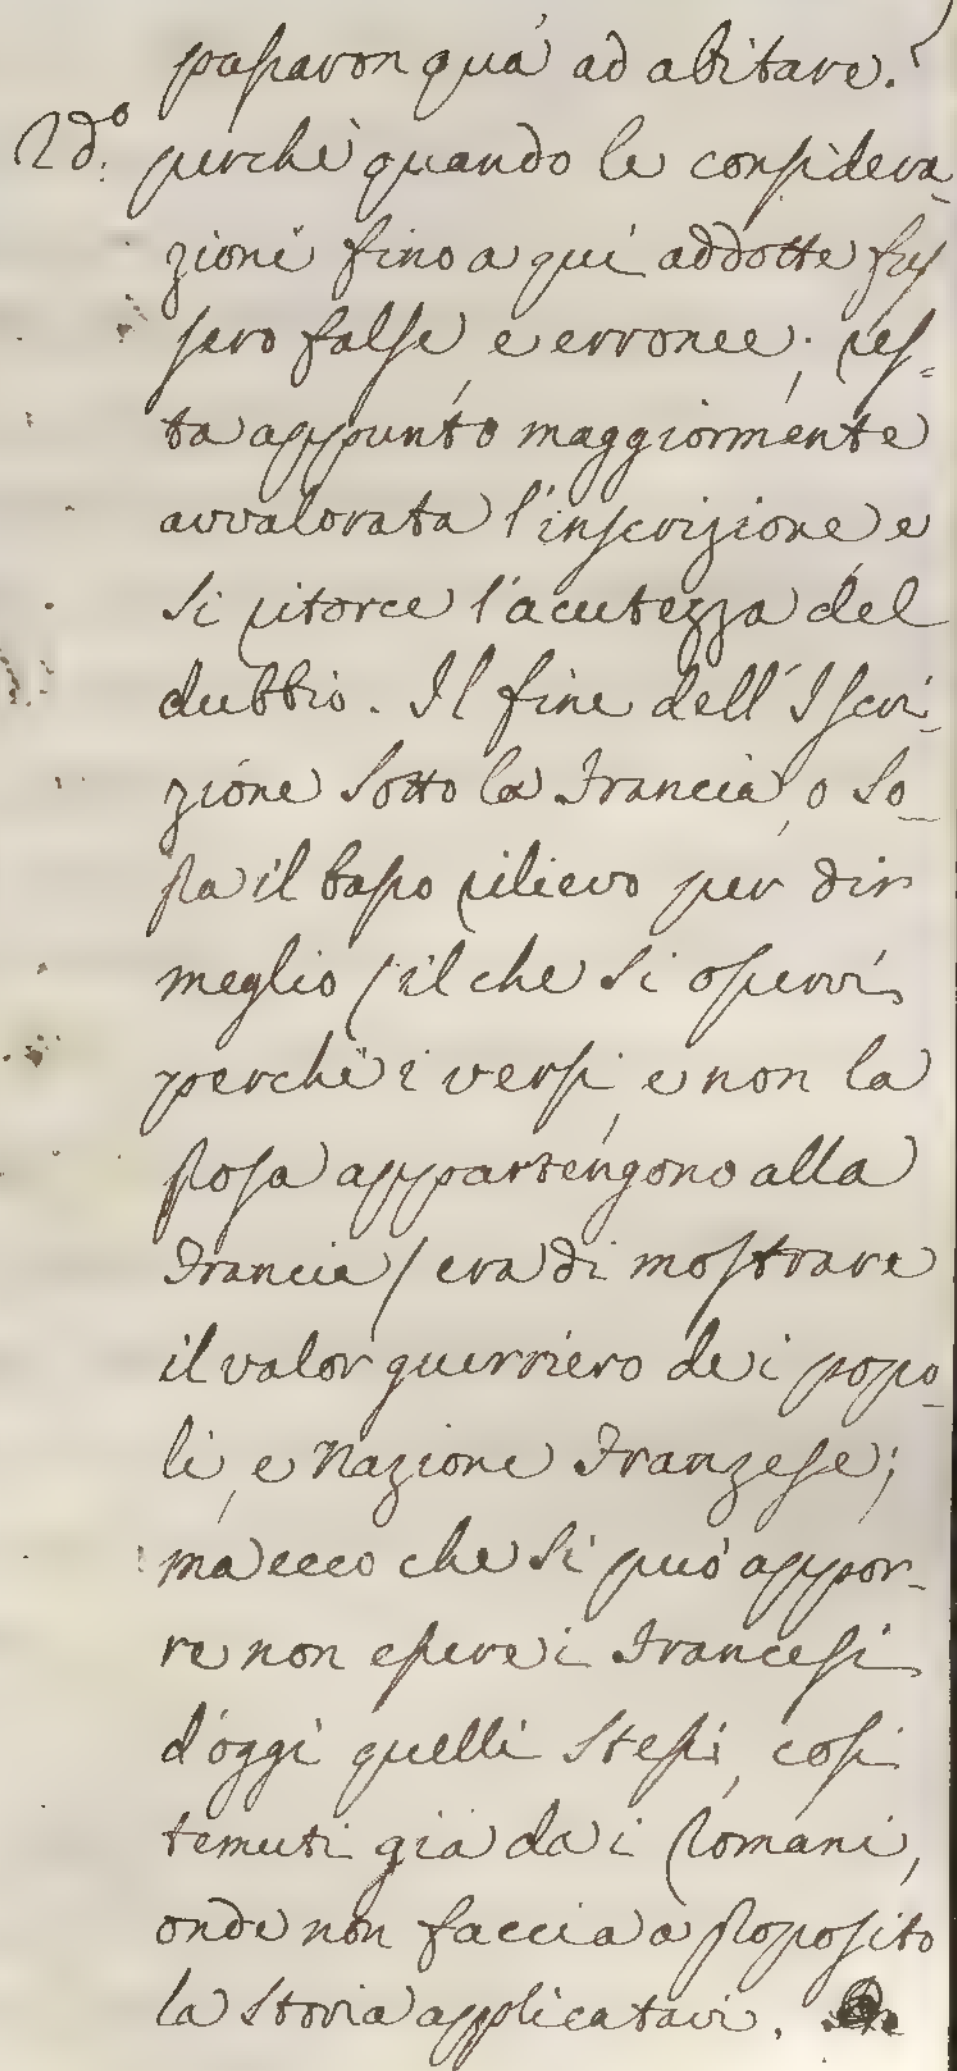 passaron quà ad abitare.
2do. perchè quando le considera-
zioni fino a quì addotte fus
sero false, e erronee; res=
ta appunto maggiormente
avvalorata l'inscrizione e
si ritorce l'acutezza del
dubbio. Il fine dell'Iscri-
zione sotto la Francia, o so-
pra il basso rilievo per dir
meglio (il che si osservi
perchè i versi, e non la
prosa appartengono alla
Francia) era di mostrare
il valor guerriero dei popo-
li, e Nazione Franzese;
ma ecco che si può appor-
re non essere i Francesi
d'oggi quelli stessi, così
temuti già dai Romani,
onde non faccia a proposito
la storia applicatavi.